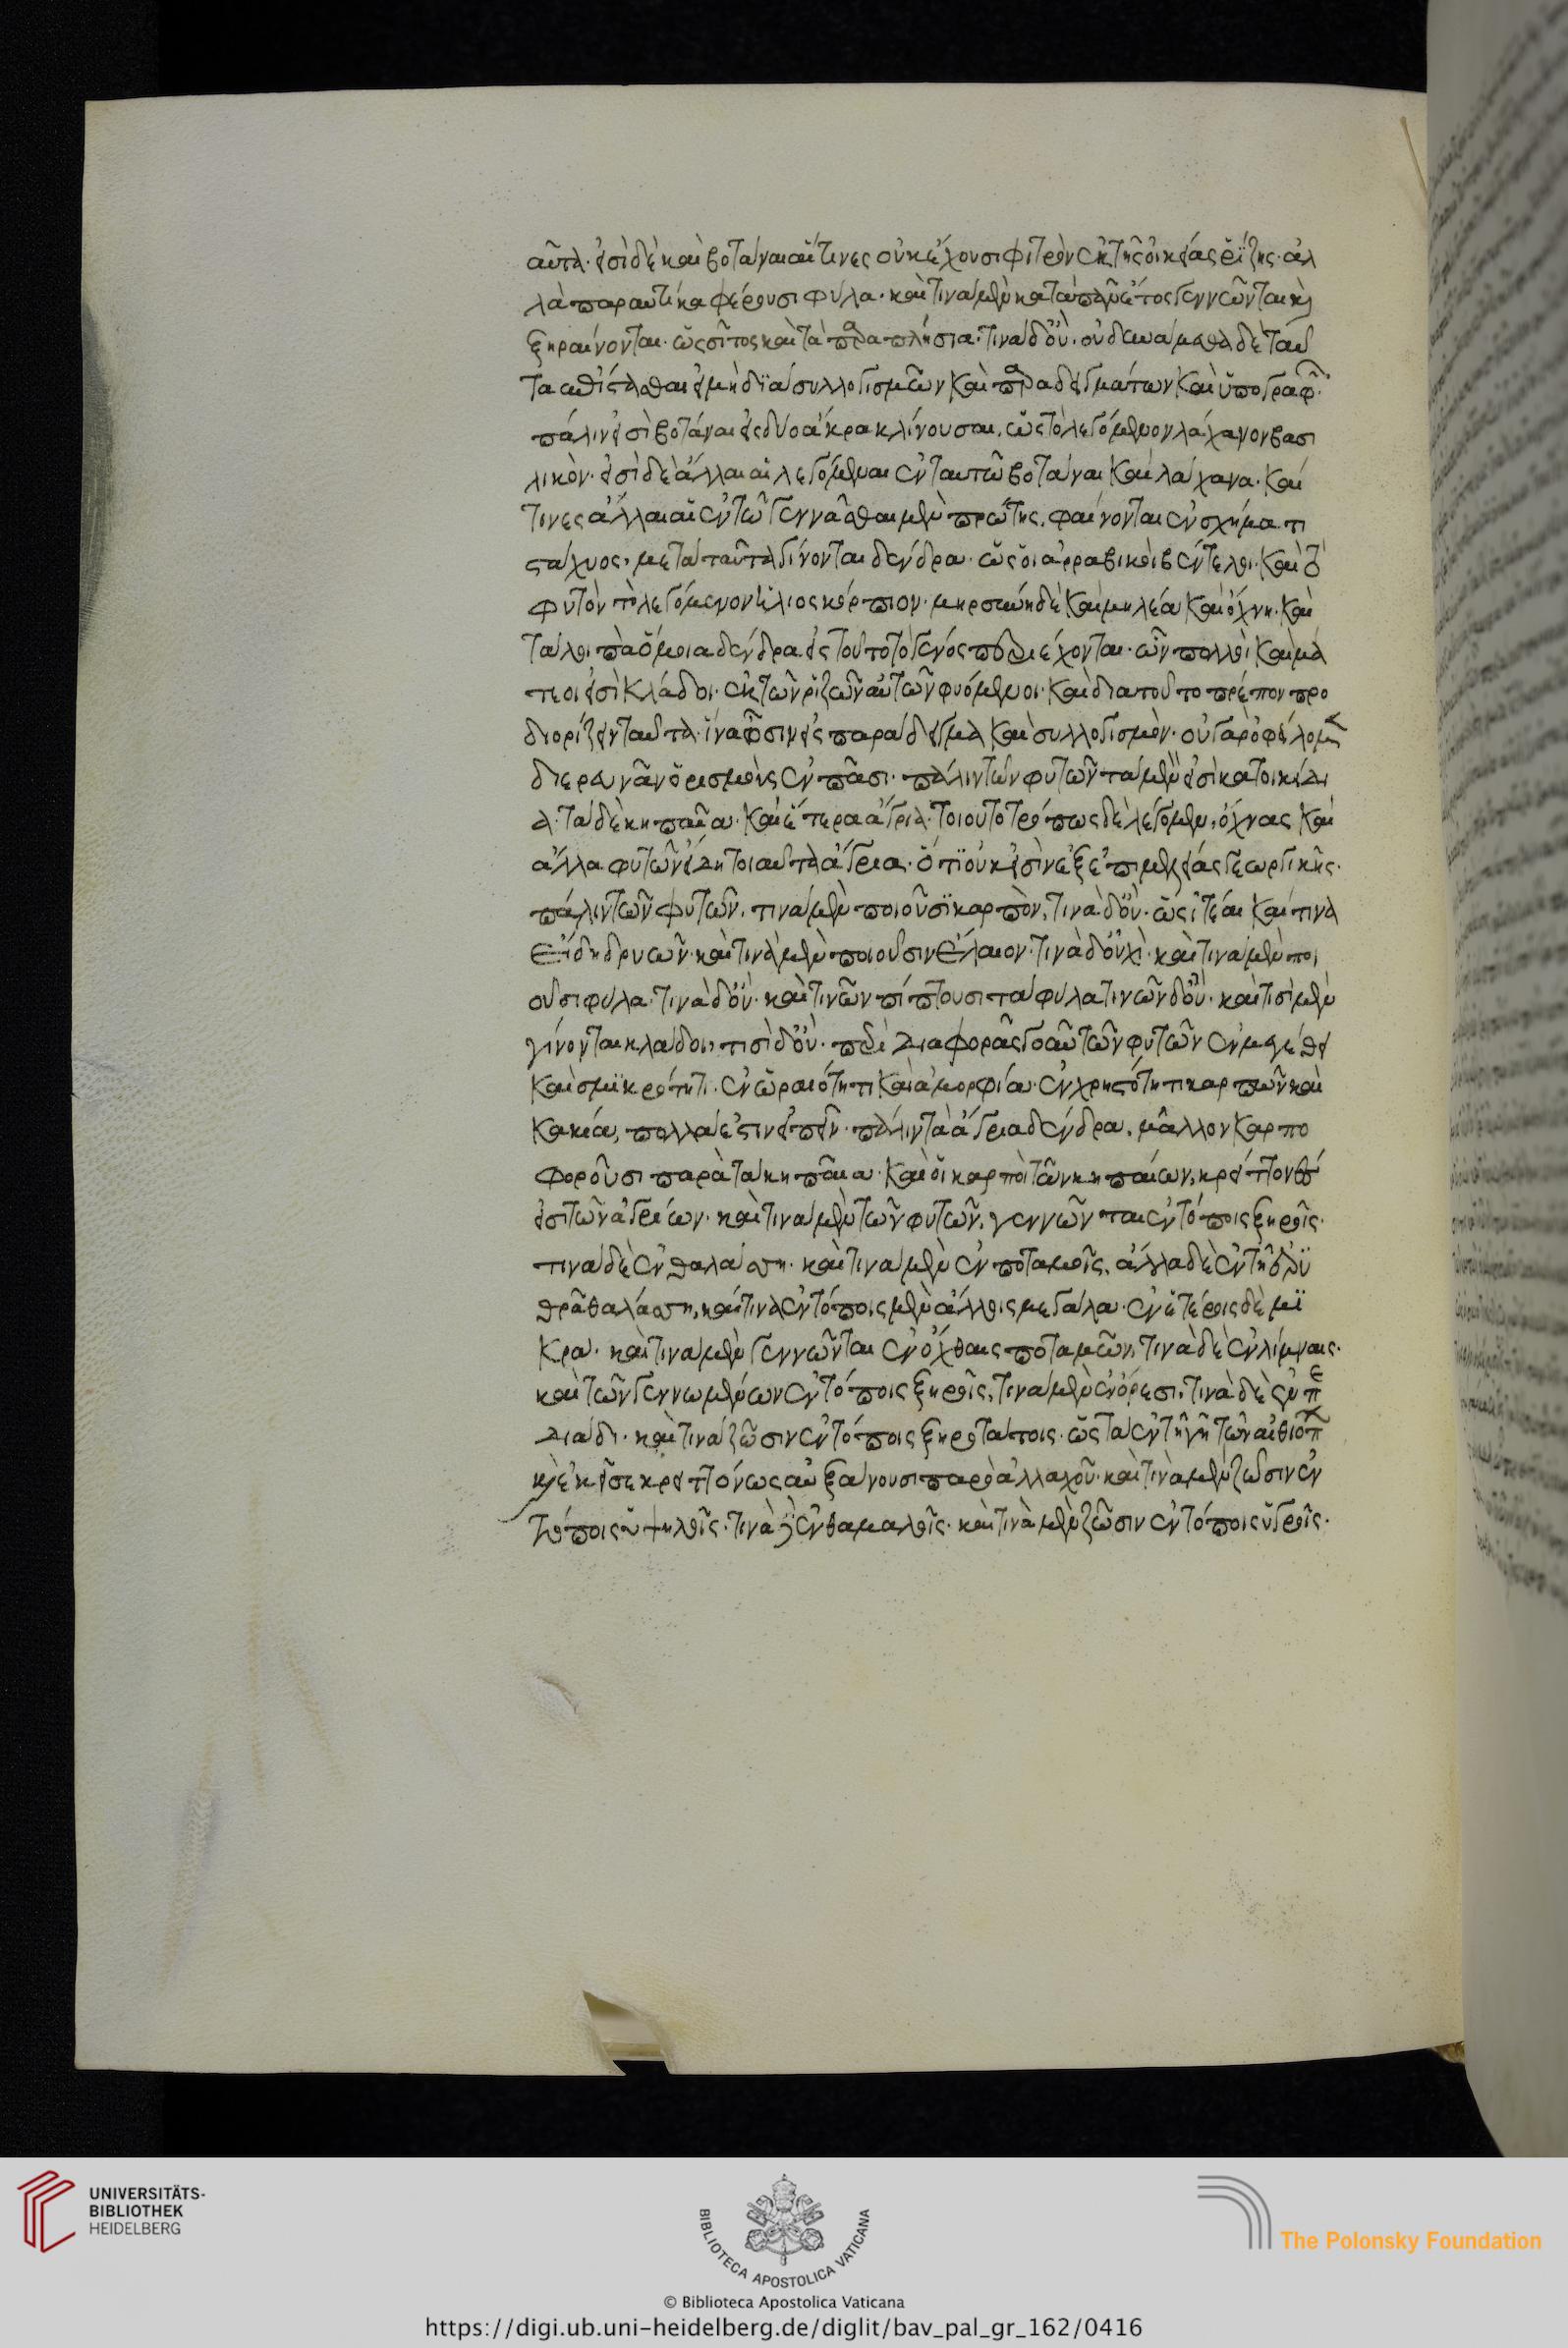 αὐτά. εἰσὶ δὲ καὶ βοτάναι αἵτινες οὐκ ἔχουσι φιτρὸν ἐκ τῆς οἰκείας ῥίζης. ἀλ
λὰ παραυτίκα φέρουσι φύλα. καὶ τινὰ μὲν κατὰ πᾶν ἔτος γεννῶνται καὶ
ξηραίνονται. ὡς σῖτος καὶ τὰ παραπλήσια. τινὰ δ' οὔ. οὐ δυνάμεθα δὲ ταῦ
τα
εἰ μὴ διὰ συλλογισμῶν καὶ παραδειγμάτων καὶ ὑπογραφῶν.
πάλιν εἰσὶ βοτάναι εἰς δύο ἄκρα κλίνουσαι, ὡς τὸ λεγόμενον λάχανον βασι
λικὸν. εἰσὶ δὲ ἄλλαι αἱ λεγόμεναι ἐν ταυτῶ βοτάναι καὶ λάχανα. καί
τινες ἄλλαι αἳ ἐν τῶ γεννᾶσθαι μὲν πρώτης, φαίνονται ἐν σχήματι
στάχυος, μετὰ ταῦτα γίνονται δένδρα. ὡς οἱ ἀρραβικοὶ βέντελοι. καὶ τὸ
φυτὸν τὸ λεγόμενον ἡλιοσκόρπιον. μυρσίνη δὲ καὶ μηλέα καὶ ὄχνη. καὶ
τὰ λοιπὰ ὅμοια δένδρα εἰς τοῦτο τὸ γένος περιέχονται. ὧν πολλοὶ καὶ μά
ταιοί εἰσι κλάδοι. ἐκ τῶν ῥιζῶν αὐτῶν φυόμενοι. καὶ διατοῦτο πρέπον προ
διορίζειν ταῦτα. ἵνα ὦσιν εἰς παράδειγμα καὶ συλλογισμὸν. οὐ γὰρ ὀφείλομεν
διερευνᾶν ὁρισμοὺς ἐν πᾶσι. πάλιν τῶν φυτῶν τὰ μέν εἰσι κατοικίδι
α. τὰ δὲ κηπαῖα. καὶ ἕτερα ἄγρια. τοιουτοτρόπως δὲ λέγομεν, ὄχνας καὶ
ἄλλα φυτῶν εἴδη τοιαῦτα ἄγρια. ὅτι οὐκ εἰσὶν ἐξ ἐπιμελείας γεωργικῆς.
πάλιν τῶν φυτῶν, τινὰ μὲν ποιοῦσι καρπὸν, τινὰ δ' οὔ. ὡς ἰτέαι καί τινα
εἴδη δρυῶν. καὶ τινὰ μὲν ποιοῦσιν ἔλαιον. τινὰ δ' οὐχὶ. καὶ τινὰ μὲν ποι
οῦσι φύλα. τινὰ δ' οὔ. καὶ τινῶν πίπτουσι τὰ φύλα τινῶν δ' οὔ. καὶ τισὶ μὲν
γίνονται κλάδοι, τισὶ δ' οὔ. περὶ διαφορᾶς γοῦν τῶν φυτῶν ἐν μεγέθει
καὶ σμικρότητι. ἐν ὡραιότητι καὶ ἀμορφία. ἐν χρηστότητι καρπῶν καὶ
κακία, πολλά ἐστιν εἰπεῖν. πάλιν τὰ ἄγρια δένδρα, μᾶλλον καρπο
φοροῦσι παρὰ τὰ κηπαῖα. καὶ οἱ καρποὶ τῶν κηπαίων, κρείττονές
εἰσι τῶν ἀγρίων. καὶ τινὰ μὲν τῶν φυτῶν, γεννῶνται ἐν τόποις ξηροῖς.
τινὰ δὲ ἐν θαλάσση. καὶ τινὰ μὲν ἐν ποταμοῖς, ἄλλα δὲ ἐν τῆ ἐρυ
θρᾶ θαλάσση, καί τινα ἐν τόποις μὲν ἄλλοις μεγάλα. ἐν ἑτέροις δὲ μι
κρα. καὶ τινὰ μὲν γεννῶνται ἐν ὄχθαις ποταμῶν, τινὰ δὲ ἐν λίμναις.
καὶ τῶν γεννωμένων ἐν τόποις ξηροῖς, τινὰ μὲν ἐν ὄρεσι, τινὰ δὲ ἐν πε
διάδι. καὶ τινὰ ζῶσιν ἐν τόποις ξηροτάτοις. ὡς τὰ ἐν τῆ γῆ τῶν αἰθιόπων
καὶ ἐκεῖσε κρειττόνως αὐξάνουσι παρὸ ἀλλαχοῦ. καὶ τινὰ μὲν ζῶσιν ἐν
τόποις ὑψηλοῖς. τινὰ δὲ ἐν χαμαλοῖς. καὶ τινὰ μὲν ζῶσιν ἐν τόποις ὑγροῖς.
UNIVERSITÄTS-
BIBLIOTHEK
HEIDELBERG
BIBLIOTECA APOSTOLICA VATICANA
The Polonsky Foundation
© Biblioteca Apostolica Vaticana
https://digi.ub.uni-heidelberg.de/diglit/bav_pal_gr_162/0416